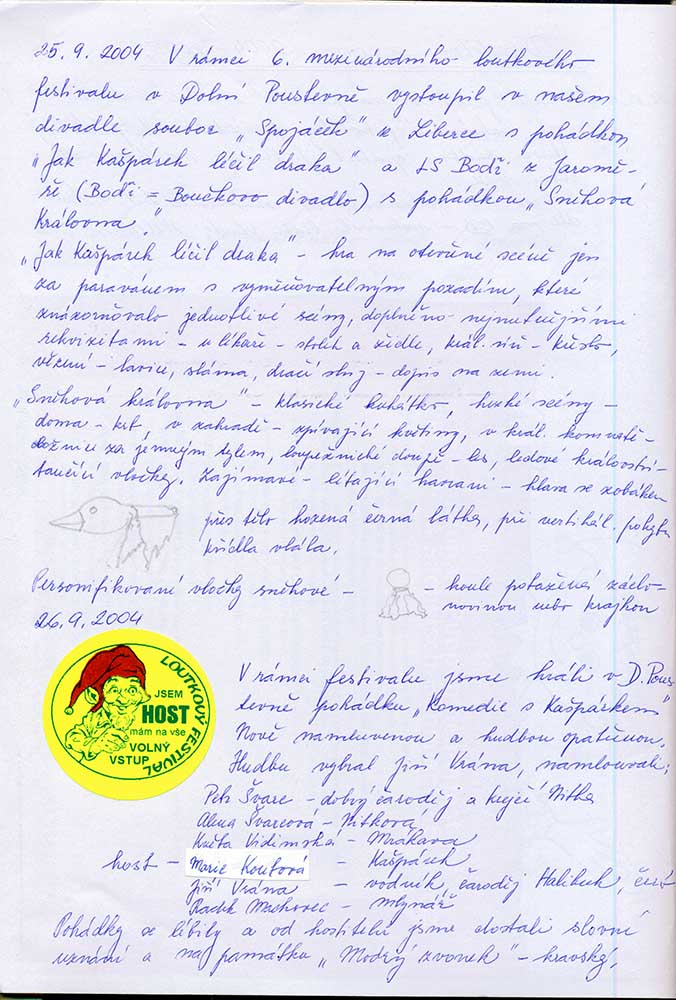 25. 9. 2004 V rámci 6. mezinárodního loutkového
festivalu v Dolní Poustevně vystoupil v našem
divadle soubor „Spojáček" z Liberce s pohádkou
„Jak Kašpárek léčil draka" a LS Boďi z Jaromě-
ře (Boďi = Boučkovo divadlo) s pohádkou „Sněhová
královna."
„Jak Kašpárek léčil draka" - hra na otevřené scéně jen
za paravánem s vyměňovatelným pozadím, které
znázorňovalo jednotlivé scény, doplněno nejnutnějšími
rekvizitami - u lékaře - stolek a židle, král. síň - křeslo,
vězení - lavice, sláma, dračí sluj - dopis na zemi.
„Sněhová královna" - klasické kukátko, hezké scény -
doma - kout, v zahradě - zpívající květiny, v král. komnatě -
ložnice za jemným tylem, loupežnické doupě - les, ledové království -
tančící vločky. Zajímavé - létající havrani - hlava se zobákem
přes tělo hozená černá látka, při vertikál. pohybu
křídla vlála.
Personifikované vločky sněhové - - koule potažená záclo-
novinou nebo krajkou
26. 9. 2004
LOUTKOVÝ FESTIVAL
JSEM
HOST
mám na vše
VOLNÝ
VSTUP
V rámci festivalu jsme hráli v D. Pous-
tevně pohádku „Komedie s Kašpárkem"
Nově namluvenou a hudbou opatřenou.
Hudbu vybral Jiří Vrána, namlouvali:
Petr Švarc - dobrý čaroděj a krejčí Nitka
Alena Švarcová - Nitková
Květa Vidimská - Mrákava
host - Marie Koutová - Kašpárek
Jiří Vrána - vodník, čaroděj Halibuk, čert
Radek Machovec - mlynář
Pohádky se líbily a od hostitelů jsme dostali slovní
uznání a na památku „Modrý zvonek" -